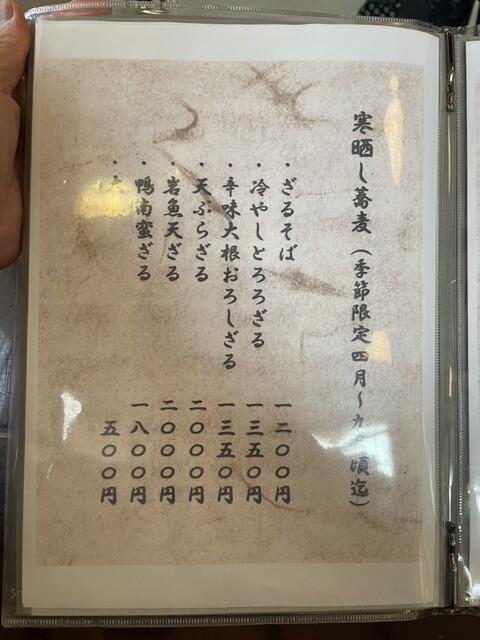 寒晒し蕎麦（季節限定四月～九 頃迄）
・ざるそば 一二〇〇円
・冷やしとろろざる 一三五〇円
・辛味大根おろしざる 一三五〇円
・天ぷらざる 二〇〇〇円
・岩魚天ざる 二〇〇〇円
・鴨南蛮ざる 一八〇〇円
・大 五〇〇円